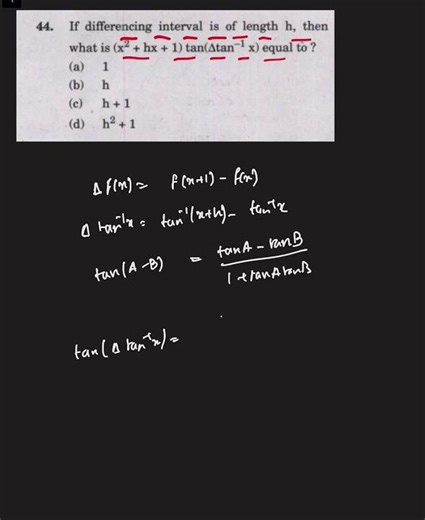 44. If differencing interval is of length h, then
what is (x² + hx + 1) tan(Δtan⁻¹ x) equal to ?
(a) 1
(b) h
(c) h + 1
(d) h² + 1
Δ f(x) = f(x+1) - f(x)
Δ tan⁻¹x = tan⁻¹(x+h) - tan⁻¹x
tan(A-B) = tanA - tanB / 1+tanAtanB
tan(Δ tan⁻¹x) =